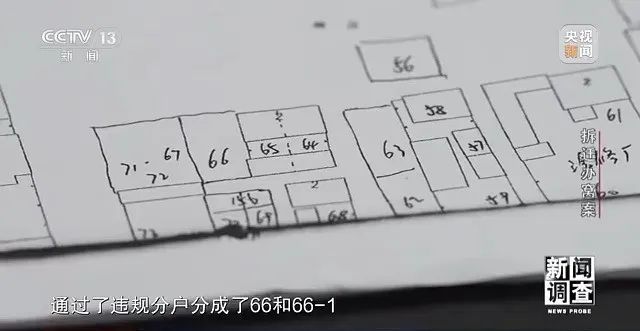 CCTV 13
新闻
央视
新闻
56
58
2
61
71-67
72
66
65
64
2
63
57
69
68
62
59
73
拆迁办窝案
新闻
调查
NEWS PROBE
通过了违规分户分成了66和66-1